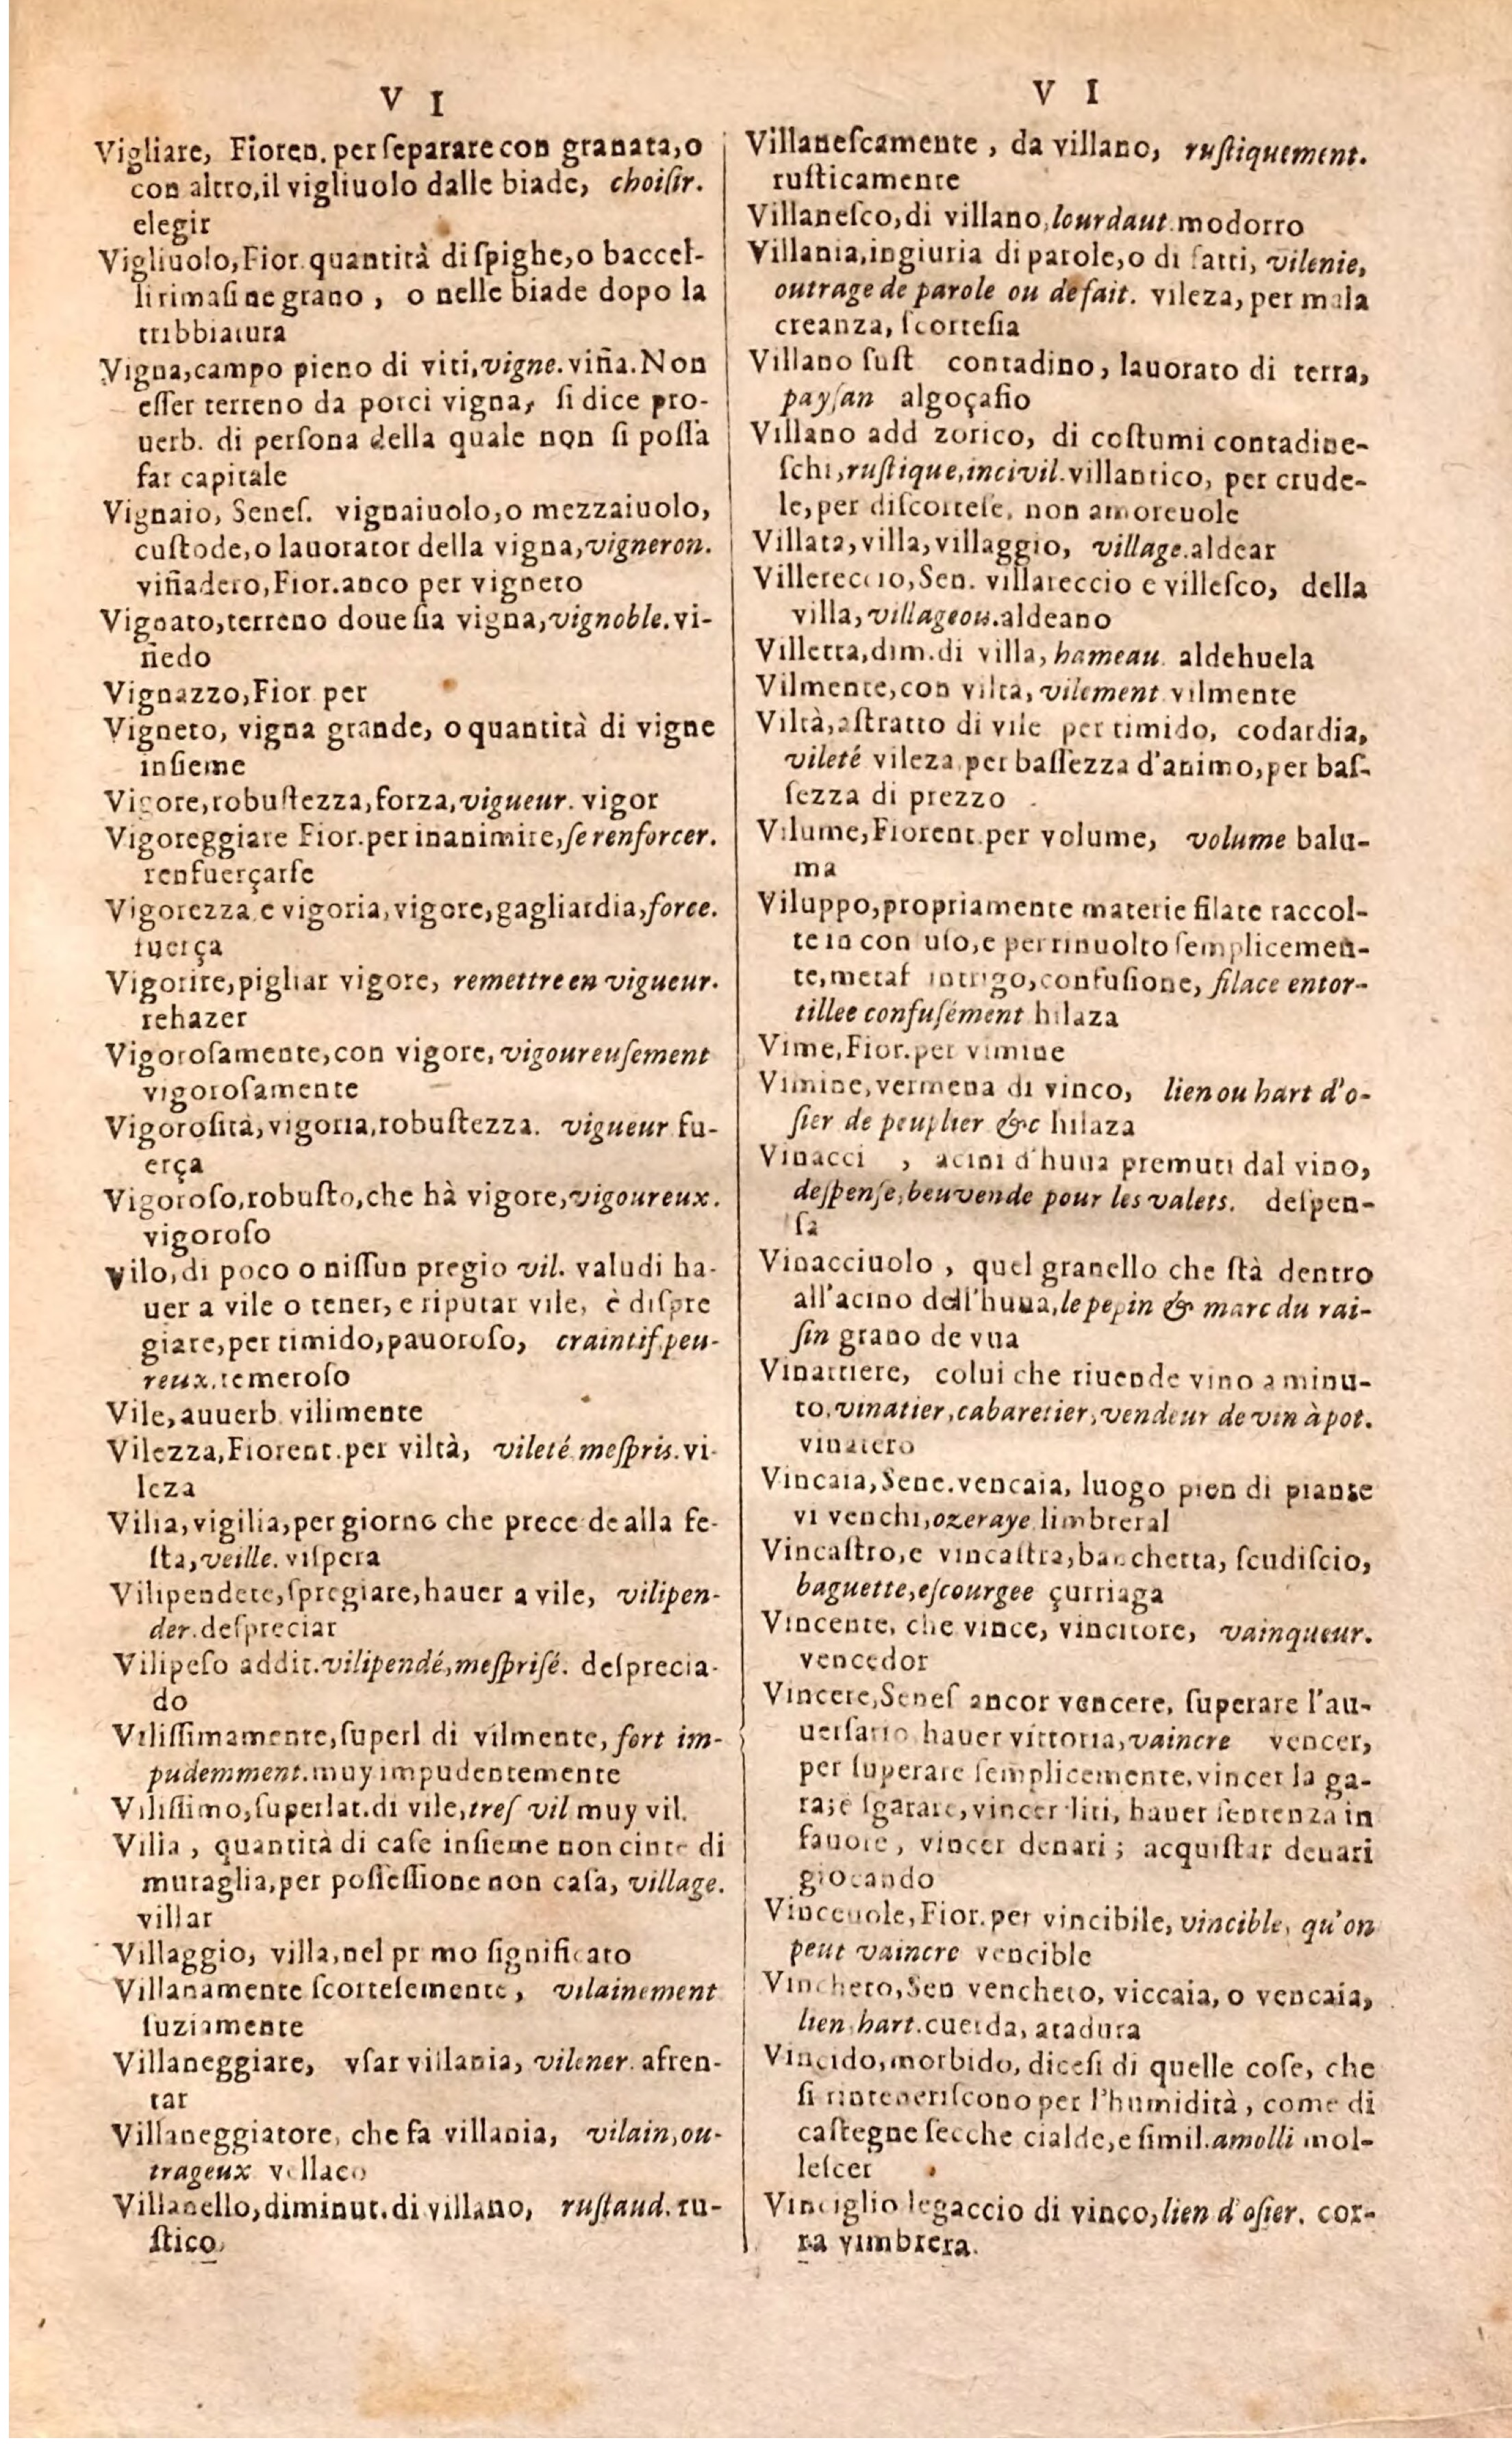 V I
Vigliare, Fioren. per ſeparare con granata, o
con altro, il vigliuolo dalle biade, choiſir.
elegir
Vigliuolo, Fior. quantità di ſpighe, o baccel-
li rimaſi ne grano, o nelle biade dopo la
tribbiatura
Vigna, campo pieno di viti, vigne. viña. Non
eſſer terreno da porci vigna, ſi dice pro-
uerb. di perſona della quale non ſi poſſa
far capitale
Vignaio, Seneſ. vignaiuolo, o mezzaiuolo,
cuſtode, o lauorator della vigna, vigneron.
viñadero, Fior. anco per vigneto
Vignato, terreno doue ſia vigna, vignoble. vi-
ñedo
Vignazzo, Fior per
Vigneto, vigna grande, o quantità di vigne
inſieme
Vigore, robuſtezza, forza, vigueur. vigor
Vigoreggiare Fior. per inanimire, ſe renforcer.
renfuerçarſe
Vigorezza e vigoria, vigore, gagliardia, force.
fuerça
Vigorire, pigliar vigore, remettre en vigueur.
rehazer
Vigoroſamente, con vigore, vigoureuſement
vigoroſamente
Vigoroſità, vigoria, robuſtezza. vigueur fu-
erça
Vigoroſo, robuſto, che hà vigore, vigoureux.
vigoroſo
vilo, di poco o niſſun pregio vil. valudi ha-
uer a vile o tener, e riputar vile, è diſpre
giare, per timido, pauoroſo, craintif, peu-
reux. temeroſo
Vile, auuerb. vilimente
Vilezza, Fiorent. per viltà, vileté meſpris. vi-
leza
Vilia, vigilia, per giorno che precede alla fe-
ſta, veille. viſpera
Vilipendere, ſpregiare, hauer a vile, vilipen-
der. deſpreciar
Vilipeſo addit. vilipendé, meſpriſé. deſprecia-
do
Viliſſimamente, ſuperl di vilmente, fort im-
pudemment. muy impudentemente
Viliſſimo, ſuperlat. di vile, treſ vil muy vil.
Villa, quantità di caſe inſieme non cinte di
muraglia, per poſſeſſione non caſa, village.
villar
Villaggio, villa, nel pr mo ſignificato
Villanamente ſcorteſemente, vilainement
ſuziamente
Villaneggiare, vſar villania, vilener. afren-
tar
Villaneggiatore, che fa villania, vilain, ou-
trageux vellaco
Villanello, diminut. di villano, ruſtaud. ru-
ſtico
V I
Villaneſcamente, da villano, ruſtiquement.
ruſticamente
Villaneſco, di villano, lourdaut. modorro
Villania, ingiuria di parole, o di fatti, vilenie,
outrage de parole ou de fait. vileza, per mala
creanza, ſcorteſia
Villano ſuſt contadino, lauorato di terra,
payſan algoçaſio
Villano add zorico, di coſtumi contadine-
ſchi, ruſtique, incivil. villantico, per crude-
le, per diſcorteſe, non amoreuole
Villata, villa, villaggio, village. aldear
Villereccio, Sen. villareccio e villeſco, della
villa, villageou. aldeano
Villetta, dim. di villa, hameau. aldehuela
Vilmente, con viltà, vilement vilmente
Viltà, aſtratto di vile per timido, codardia,
vileté vileza per baſſezza d'animo, per baſ-
ſezza di prezzo
Vilume, Fiorent. per volume, volume balu-
ma
Viluppo, propriamente materie filate raccol-
te in con uſo, e per rinuolto ſemplicemen-
te, metaf intrigo, confuſione, filace entor-
tillee confuſément hilaza
Vime, Fior. per vimine
Vimine, vermena di vinco, lien ou hart d'o-
ſier de peuplier &c hilaza
Vinacci , acini d'huua premuti dal vino,
deſpenſe, beuvende pour les valets. deſpen-
ſa
Vinacciuolo, quel granello che ſtà dentro
all'acino dell'huua, le pepin & marc du rai-
ſin grano de vua
Vinattiere, colui che riuende vino a minu-
to, vinatier, cabaretier, vendeur de vin à pot.
vinatero
Vincaia, Sene. vencaia, luogo pien di piante
vi venchi, ozeraye limbreral
Vincaſtro, e vincaſtra, bacchetta, ſcudiſcio,
baguette, eſcourgee çurriaga
Vincente, che vince, vincitore, vainqueur.
vencedor
Vincere, Seneſ ancor vencere, ſuperare l'au-
uerſario hauer vittoria, vaincre vencer,
per ſuperare ſemplicemente, vincer la ga-
ra; e ſgarare, vincer liti, hauer ſentenza in
fauore, vincer denari; acquiſtar denari
giocando
Vinceuole, Fior. per vincibile, vincible, qu'on
peut vaincre vencible
Vincheto, Sen vencheto, viccaia, o vencaia,
lien hart. cuerda, atadura
Vincido, morbido, diceſi di quelle coſe, che
ſi rinteneriſcono per l'humidità, come di
caſtegne ſecche cialde, e ſimil. amolli mol-
leſcer
Vinciglio legaccio di vinco, lien d'oſier. cor-
ra vimbrera.